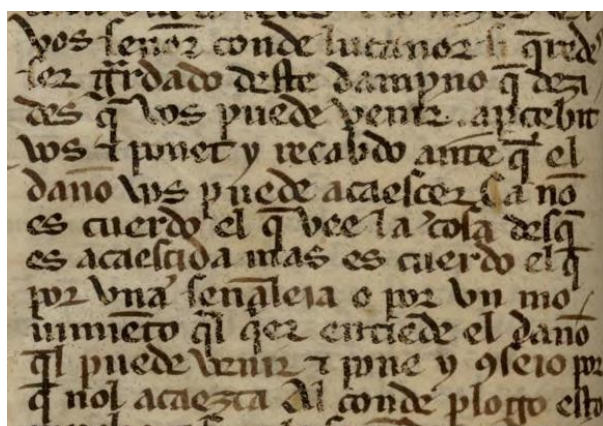 vos señor conde lucanor si q̃rede
ser gr̃dado deste dampno q̃ dezi
des q̃ vos puede venir. aꝑcebit
vos ⁊ ponet y recabdo ante q̃ el
daño vos puede acaescer Ca nõ
es cuerdo el q̃ vee la cosa desq̃
es acaescida mas es cuerdo el q̃
por vna señaleia o por vn mo
uimiẽto q̃l q̃er entiẽde el daño
q̃l puede venir ⁊ pone y ꝯseio por
q̃ nol acaezca Al conde plogo esto